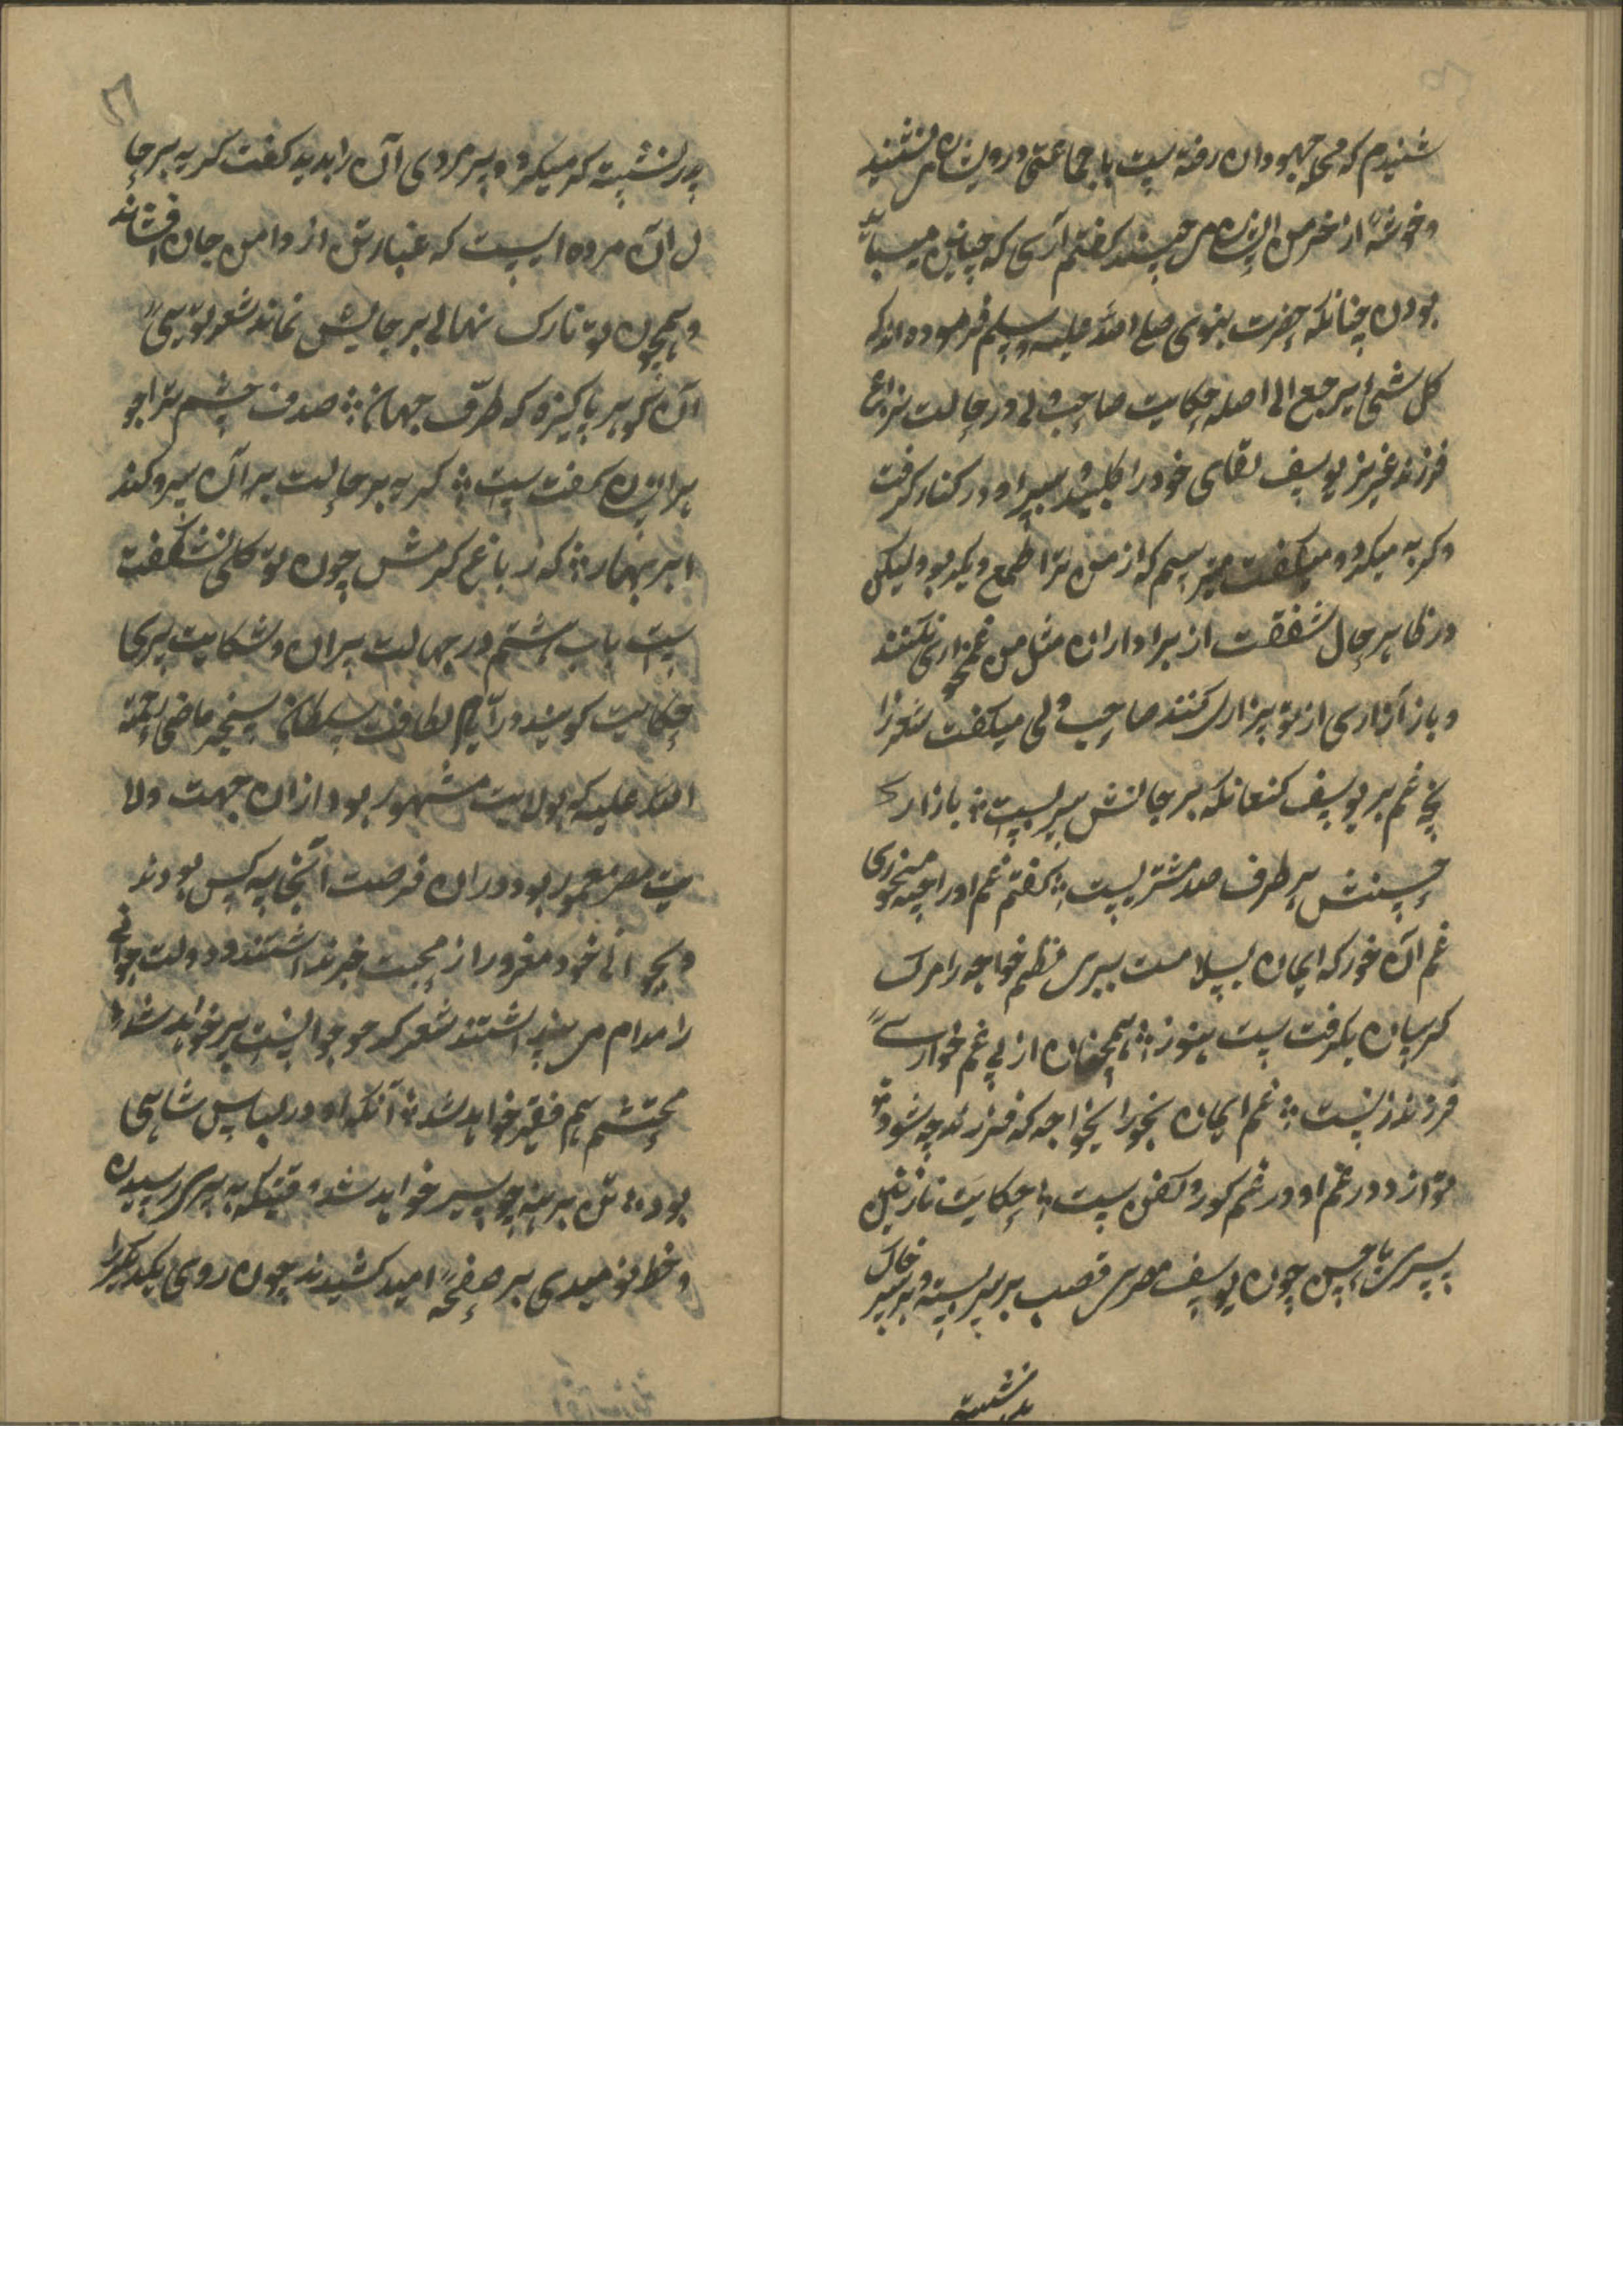 شنیدم که محی جهودان رفته است با جماعتی درویشان می نشیند
و خوشهٔ از خرمن ایشان می چیند گفتم آری که چنین میباید
بودن چنانکه حضرت نبوی صلی الله علیه وسلم فرموده اند که
کل شئ یرجع الی اصله حکایت صاحب دلی در حالت نزاع
فرزند عزیز یوسف لقای خود را طلبید سر او در کنار گرفت
و گریه میکرد و میگفت میترسم که از من ترا طمع دیگر بود لیکن
در ظاهر حال شفقت از برادران مثل من غمخواری نکنند
و باز آزاری از تو بیزاری کنند صاحب دلی میگفت شعر
غم بر یوسف کنعانکه بر جانش سریست ؞ بازار
حسنش بر طرف صد مشتریست ؞ گفتم غم او را چه میخوری
غم آن خور که ایمان بسلامت ببری نظم خواجه را مرگ
گریبان بگرفت ست هنوز ؞ همچنان از پی غم خوارئ
فرزندنست ؞ غم ایمان بخور ایخواجه که فرزند چه شود
تو از دو در غم او در غم گور و کفن ست ؞ حکایت نازنین
پسری با حسن چون یوسف مصری قصب بر سر بسته و بر سر خاک
پدر نشسته
پدر نشسته که میکرد و پیر مردی آن را بدید گفت گریه بر حا
ل آن مرده ایست که غبارش از دامن جان افشاند
و همچون تو نازک نهالی بر جایش نماند شعر توئی
آن گوهر پاکیزه که طرف جهان ؞ صدف چشم ترا جو
هر ایشان گفت ست ؞ گریه بر حالت بر آن سرو کند
ابر بهار ؞ که ز باغ کرمش چون تو گلی نشگفت
ست باب هشتم در جهالت پیران و شکایت پیری
حکایت گویند در ایام لطافت سلطان سنجر ماضی رحمة
الله علیه که بولایت مشهور بود از ان جهت ولا
یت مصر معمور بود در ان فرصت آنجا سه کس بودند
و بجوانی خود مغرور از محبت خبر نداشتند و دولت جوانی
را مدام می پنداشتند شعر که جو جوانست پیر خواهد شد ؞
محتشم هم فقیر خواهد شد ؞ آنکه او در لباس شاهی
بود ؞ تن برهنه چو سیر خواهد شد وقتیکه به پیری رسیدن
و خط نومیدی بر صفحهٔ امید کشیدند چون روی یکدیگر را